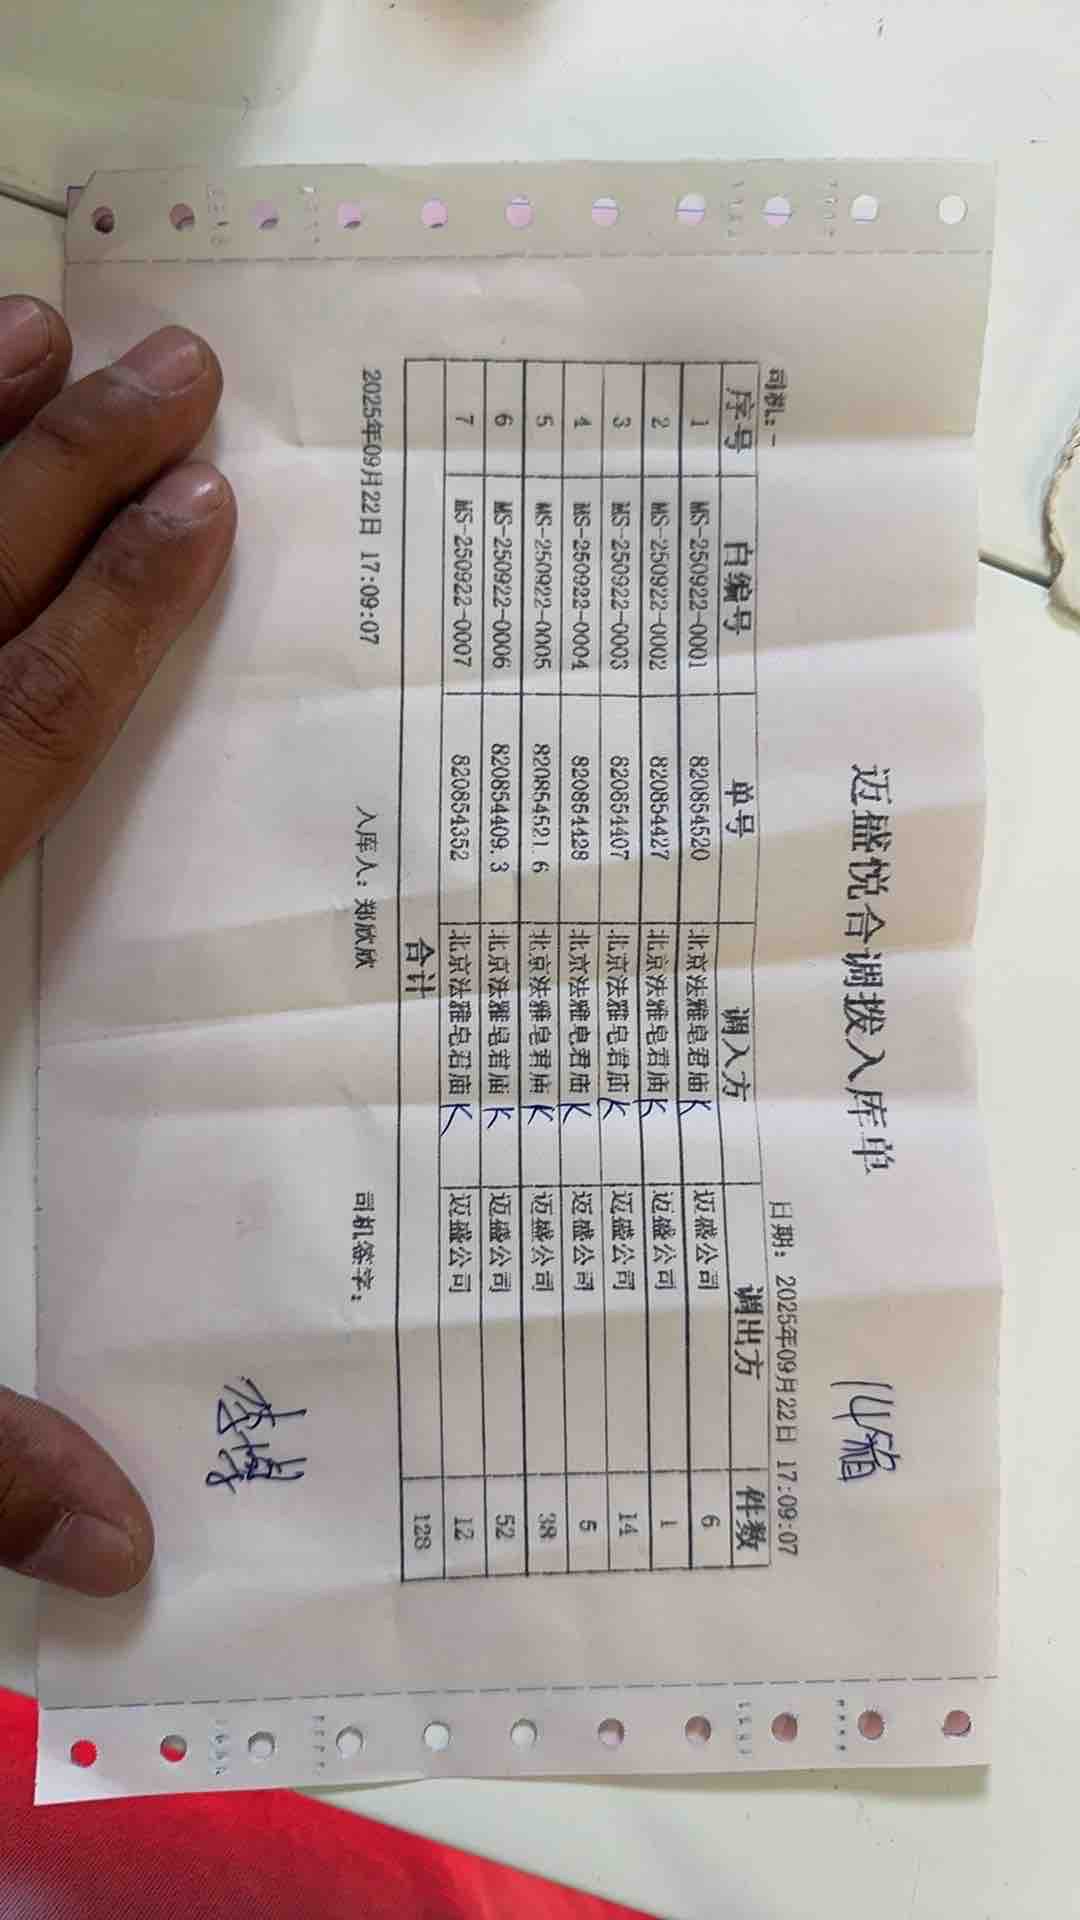 迈盛悦合调拨入库单
14箱
司机:-
日期: 2025年09月22日 17:09:07
序号 自编号 单号 调入方 调出方 件数
1 MS-250922-0001 820854520 北京法雅皂君庙K 迈盛公司 6
2 MS-250922-0002 820854427 北京法雅皂君庙K 迈盛公司 1
3 MS-250922-0003 820854407 北京法雅皂君庙K 迈盛公司 14
4 MS-250922-0004 820854428 北京法雅皂君庙K 迈盛公司 5
5 MS-250922-0005 820854521.6 北京法雅皂君庙K 迈盛公司 38
6 MS-250922-0006 820854409.3 北京法雅皂君庙K 迈盛公司 52
7 MS-250922-0007 820854352 北京法雅皂君庙K 迈盛公司 12
合计 128
2025年09月22日 17:09:07 入库人: 郑欣欣 司机签字: